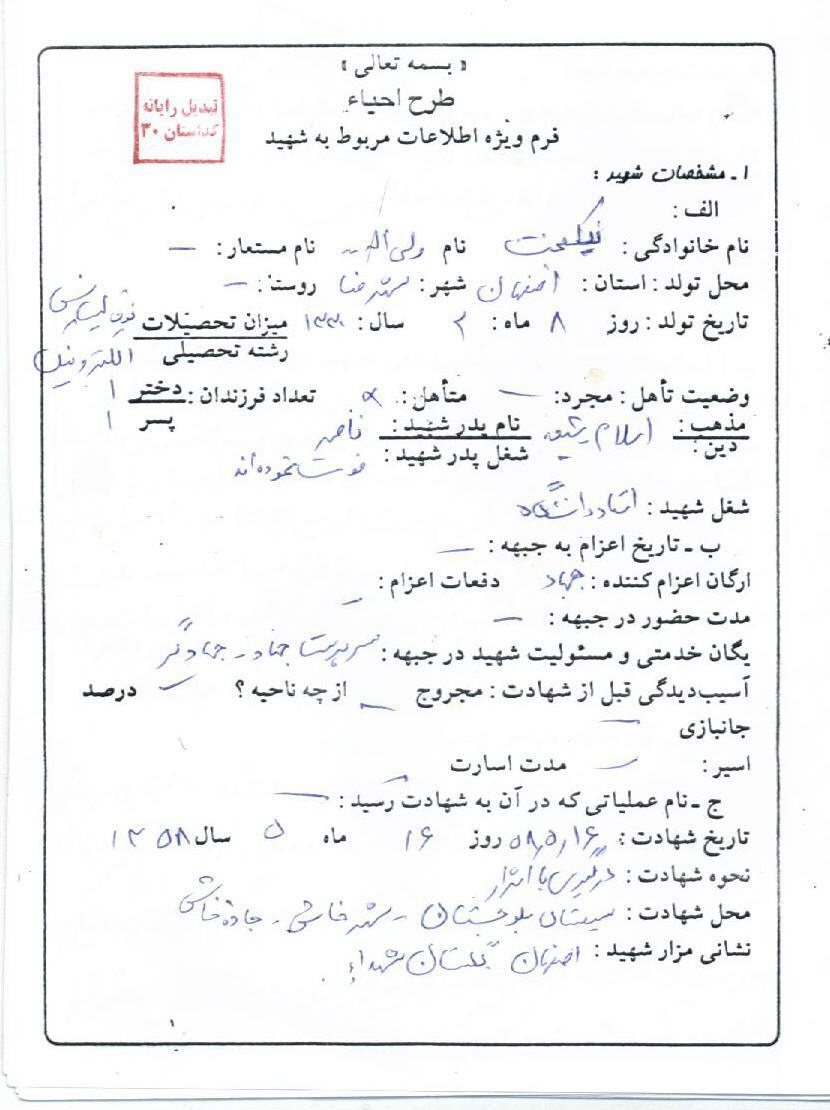 « بسمه تعالی »
طرح احیاء
تبدیل رایانه
گلستان ۳۰
فرم ویژه اطلاعات مربوط به شهید
۱ ـ مشخصات شهید :
الف :
نام خانوادگی : نیکبخت نام ولی اله نام مستعار : —
محل تولد : استان : اصفهان شهر : شهرضا روستا : —
تاریخ تولد : روز ۸ ماه : ۲ سال : ۱۳۳۰ میزان تحصیلات فوق لیسانس
رشته تحصیلی الکترونیک
وضعیت تأهل : مجرد : — متأهل : تعداد فرزندان : دختر ۱
پسر ۱
مذهب : اسلام شیعه نام پدر شهید : ناصر
دین : شغل پدر شهید : فوت نموده اند
شغل شهید : استاد دانشگاه
ب ـ تاریخ اعزام به جبهه : —
ارگان اعزام کننده : جهاد دفعات اعزام : —
مدت حضور در جبهه : —
یگان خدمتی و مسئولیت شهید در جبهه : سرپرست جهاد - جهادگر
آسیب‌دیدگی قبل از شهادت : مجروح — از چه ناحیه ؟ — درصد
جانبازی —
اسیر : — مدت اسارت —
ج ـ نام عملیاتی که در آن به شهادت رسید : —
تاریخ شهادت : ۵۸٫۵٫۱۶ روز ۱۶ ماه ۵ سال ۱۳۵۸
نحوه شهادت : درگیری با اشرار
محل شهادت : سیستان بلوچستان - شهر خاش - جاده خاش
نشانی مزار شهید : اصفهان گلستان شهداء
۱